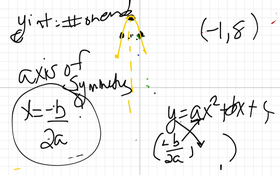 yint: #on end
(-1,8)
axis of
symmetry
x = -b/2a
y = ax² + bx + c
(-b/2a, )